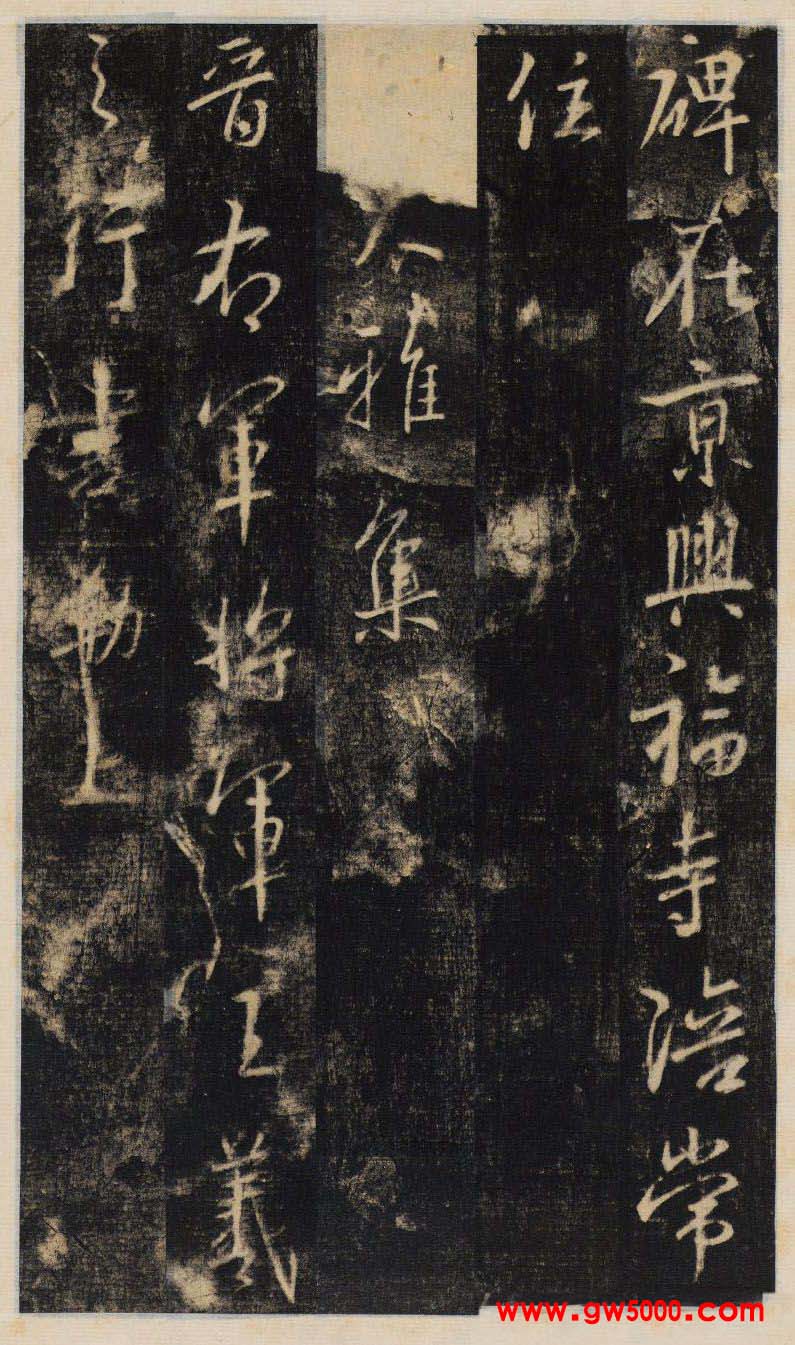 碑在京興福寺陪常
住
大雅集
晉右軍將軍王羲
之行書勒上
www.gw5000.com